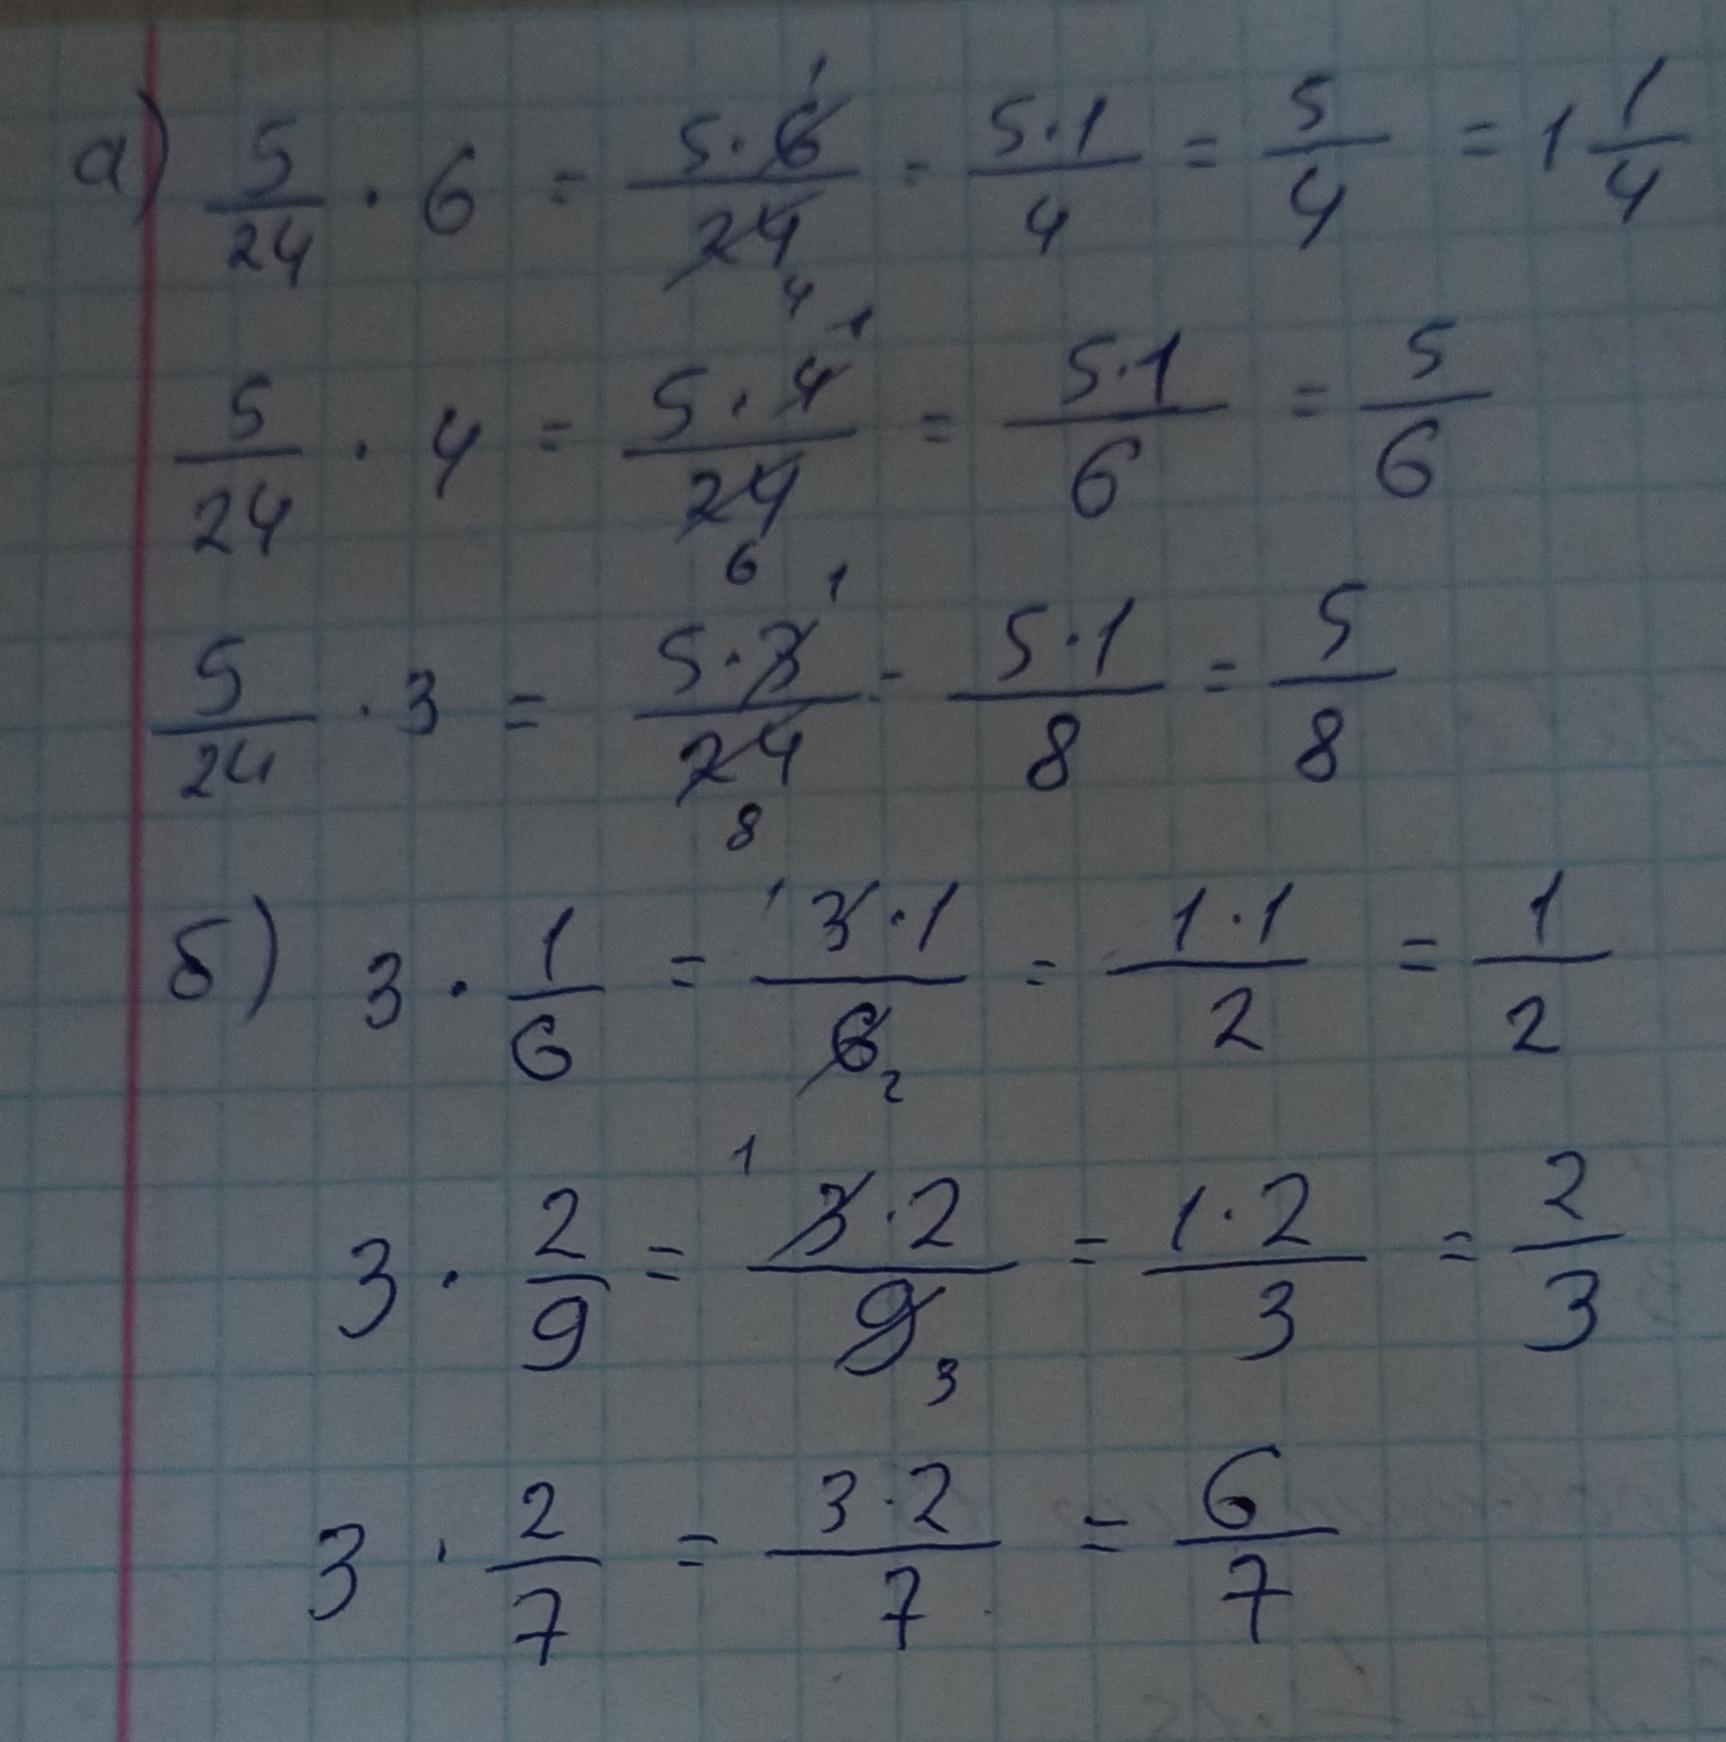 а) 5/24 · 6 = 5·6/24 = 5·1/4 = 5/4 = 1 1/4
5/24 · 4 = 5·4/24 = 5·1/6 = 5/6
5/24 · 3 = 5·3/24 = 5·1/8 = 5/8
б) 3 · 1/6 = 3·1/6 = 1·1/2 = 1/2
3 · 2/9 = 3·2/9 = 1·2/3 = 2/3
3 · 2/7 = 3·2/7 = 6/7